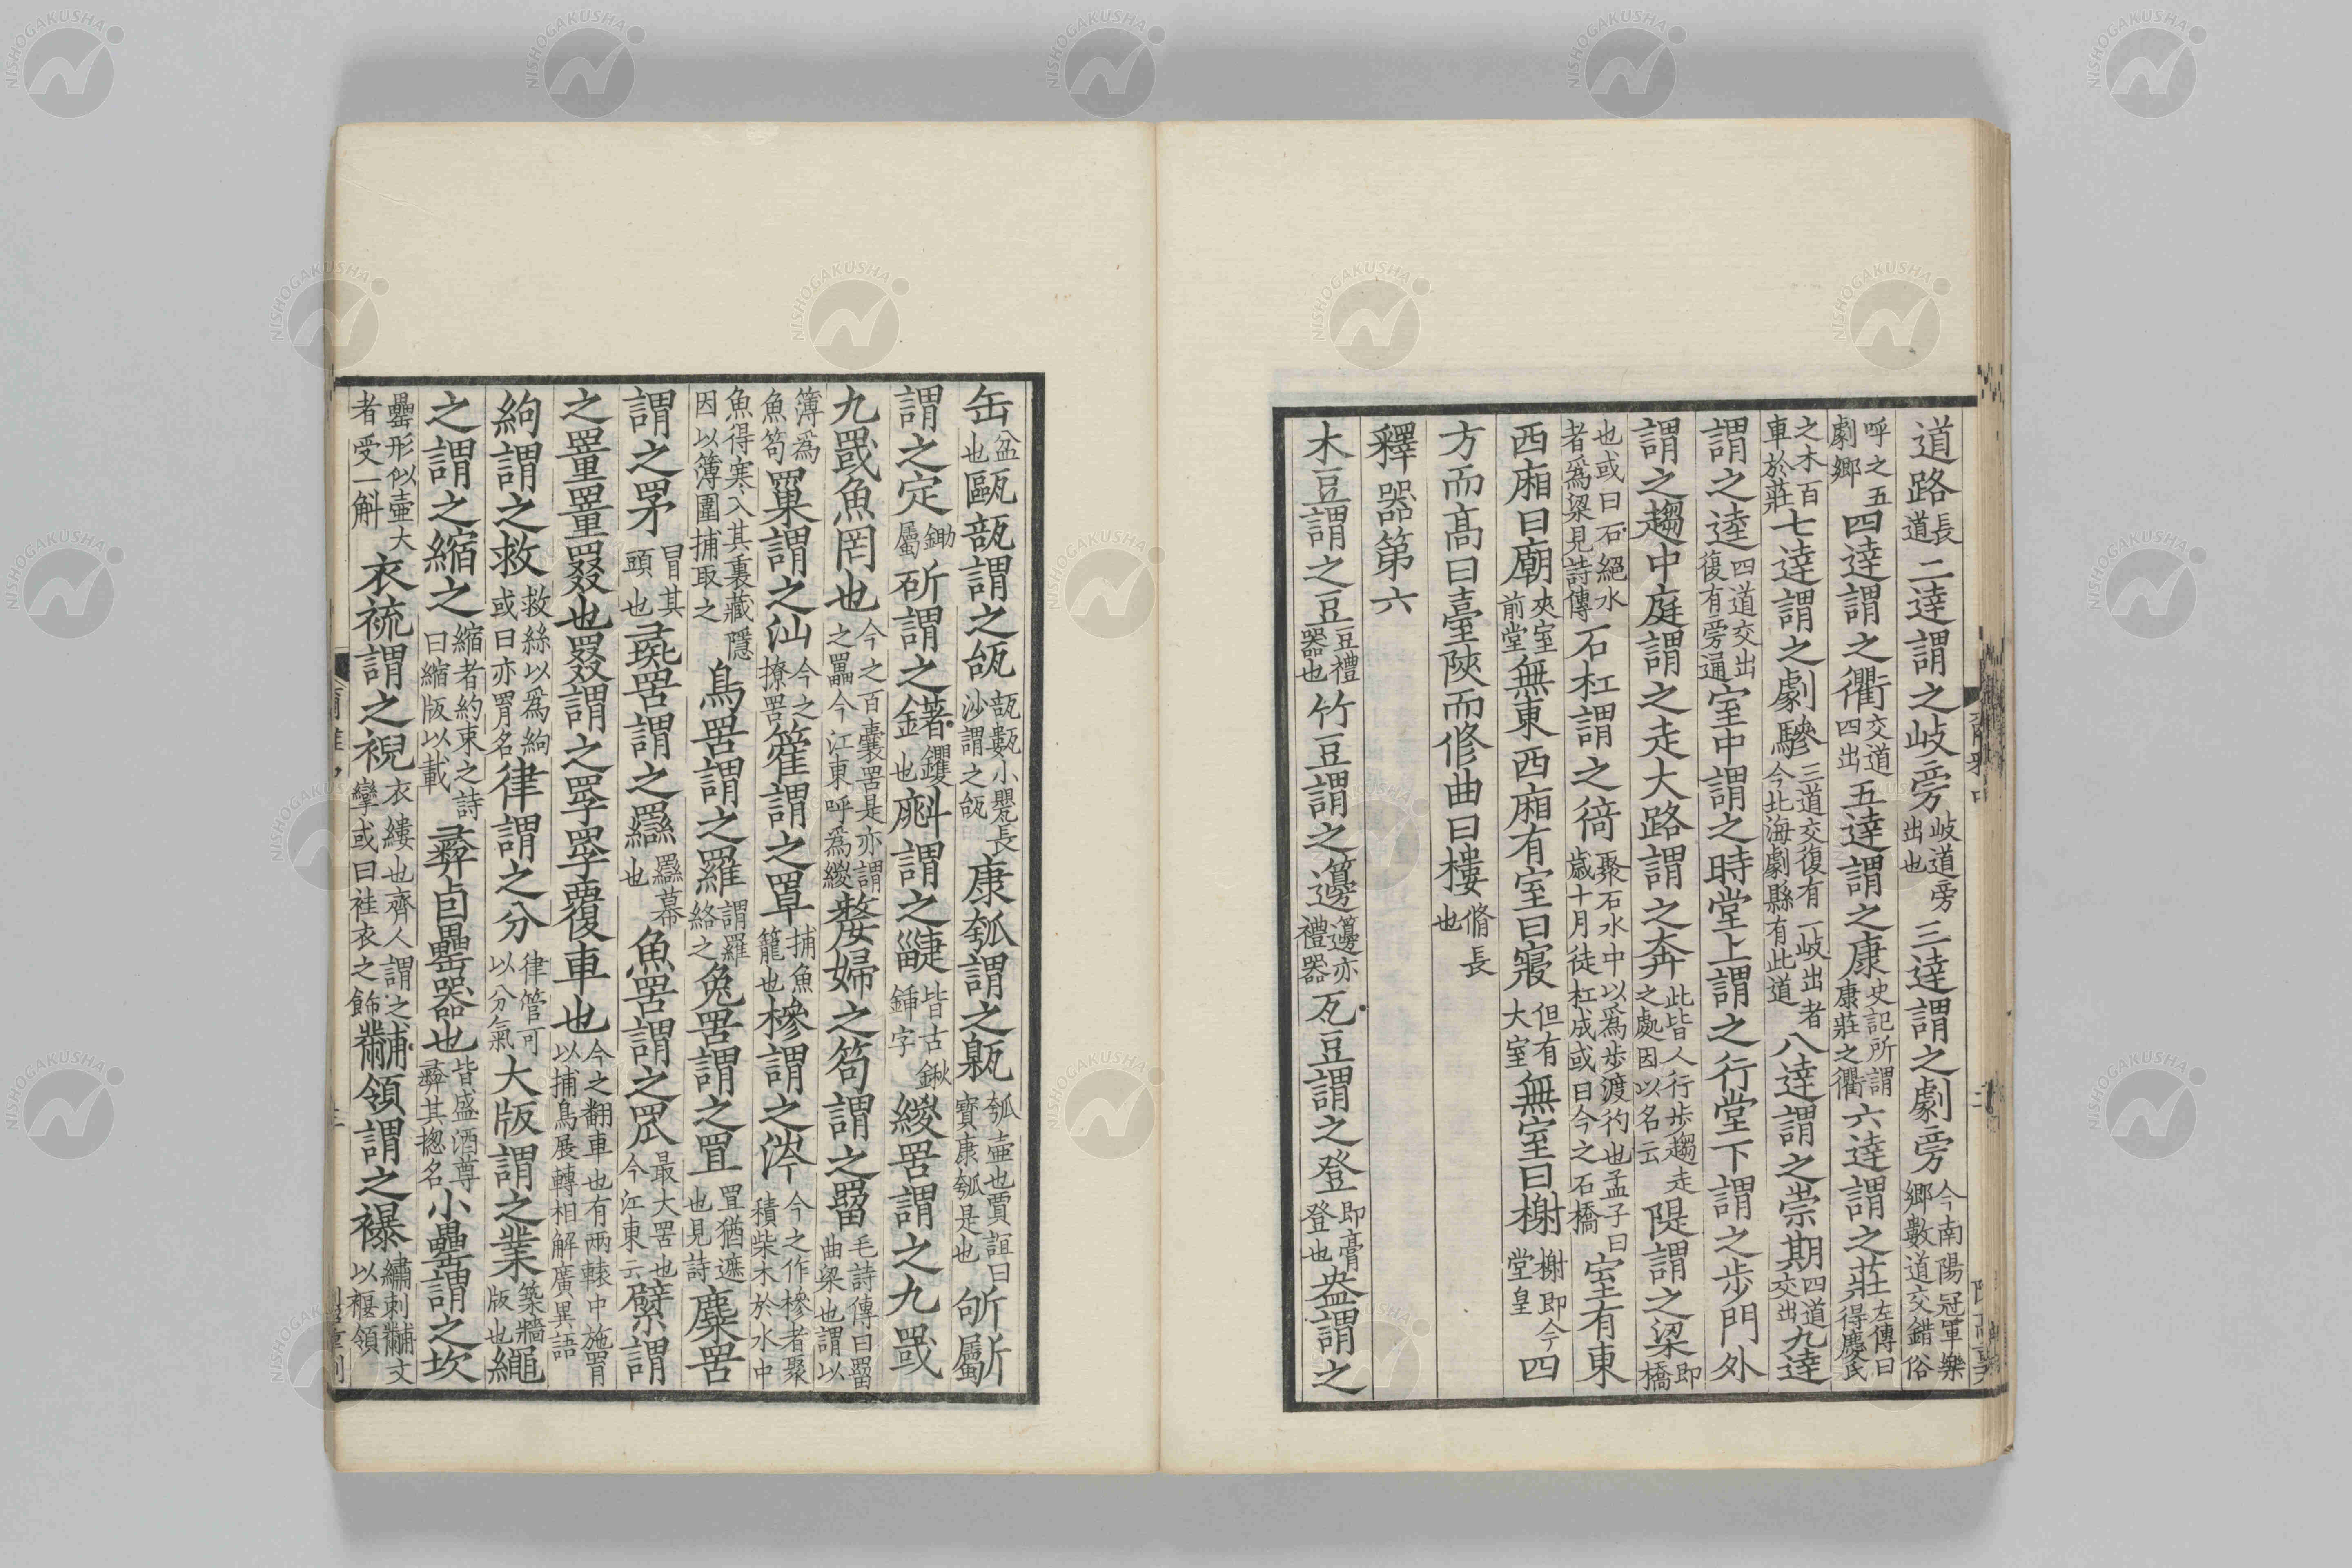 道路長道二逹謂之歧旁歧道旁出也三逹謂之劇旁今南陽冠軍樂鄉數道交錯俗
呼之五劇鄉四逹謂之衢交道四出五逹謂之康史記所謂康莊之衢六逹謂之莊左傳曰得慶氏
之木百車於莊七逹謂之劇驂三道交復有一歧出者今北海劇縣有此道八逹謂之崇期四道交出九逹
謂之逵四道交出復有旁通室中謂之時堂上謂之行堂下謂之步門外
謂之趨中庭謂之走大路謂之奔此皆人行步趨走之處因以名云隄謂之梁即橋
也或曰石絕水者爲梁見詩傳石杠謂之徛聚石水中以爲步渡彴也孟子曰歲十月徒杠成或曰今之石橋室有東
西廂曰廟夾室前堂無東西廂有室曰寢但有大室無室曰榭榭即今堂皇四
方而高曰臺陝而修曲曰樓脩長也
釋器第六
木豆謂之豆豆禮器也竹豆謂之籩籩亦禮器瓦豆謂之登即膏登也盎謂之
缶盆也甌瓿謂之瓵瓿甊小甖長沙謂之瓵康瓠謂之甈瓠壺也賈誼曰寶康瓠是也斪斸
謂之定鋤屬斫謂之鐯钁也斛謂之疀皆古鍬鍤字緵罟謂之九罭
九罭魚罔也今之百囊罟是亦謂之䍡今江東呼爲緵嫠婦之笱謂之罶毛詩傳曰罶曲梁也謂以
簿爲魚笱罺謂之汕今之撩罟篧謂之罩捕魚籠也槮謂之涔今之作槮者聚積柴木於水中
魚得寒入其裏藏隱因以簿圍捕取之鳥罟謂之羅謂羅絡之兔罟謂之罝罝猶遮也見詩麋罟
謂之罞冒其頭也彘罟謂之羉羉幕也魚罟謂之罛最大罟也今江東云繴謂
之罿罿罬也罬謂之罦罦覆車也今之翻車也有兩轅中施罥以捕鳥展轉相解廣異語
絇謂之救救絲以爲絇或曰亦罥名律謂之分律管可以分氣大版謂之業築牆版也繩
之謂之縮之縮者約束之詩曰縮版以載彝卣罍器也皆盛酒尊彝其揔名小罍謂之坎
罍形似壷大者受一斛衣裗謂之祝衣縷也齊人謂之攣或曰袿衣之飾黼領謂之襮繡刺黼文以褗領